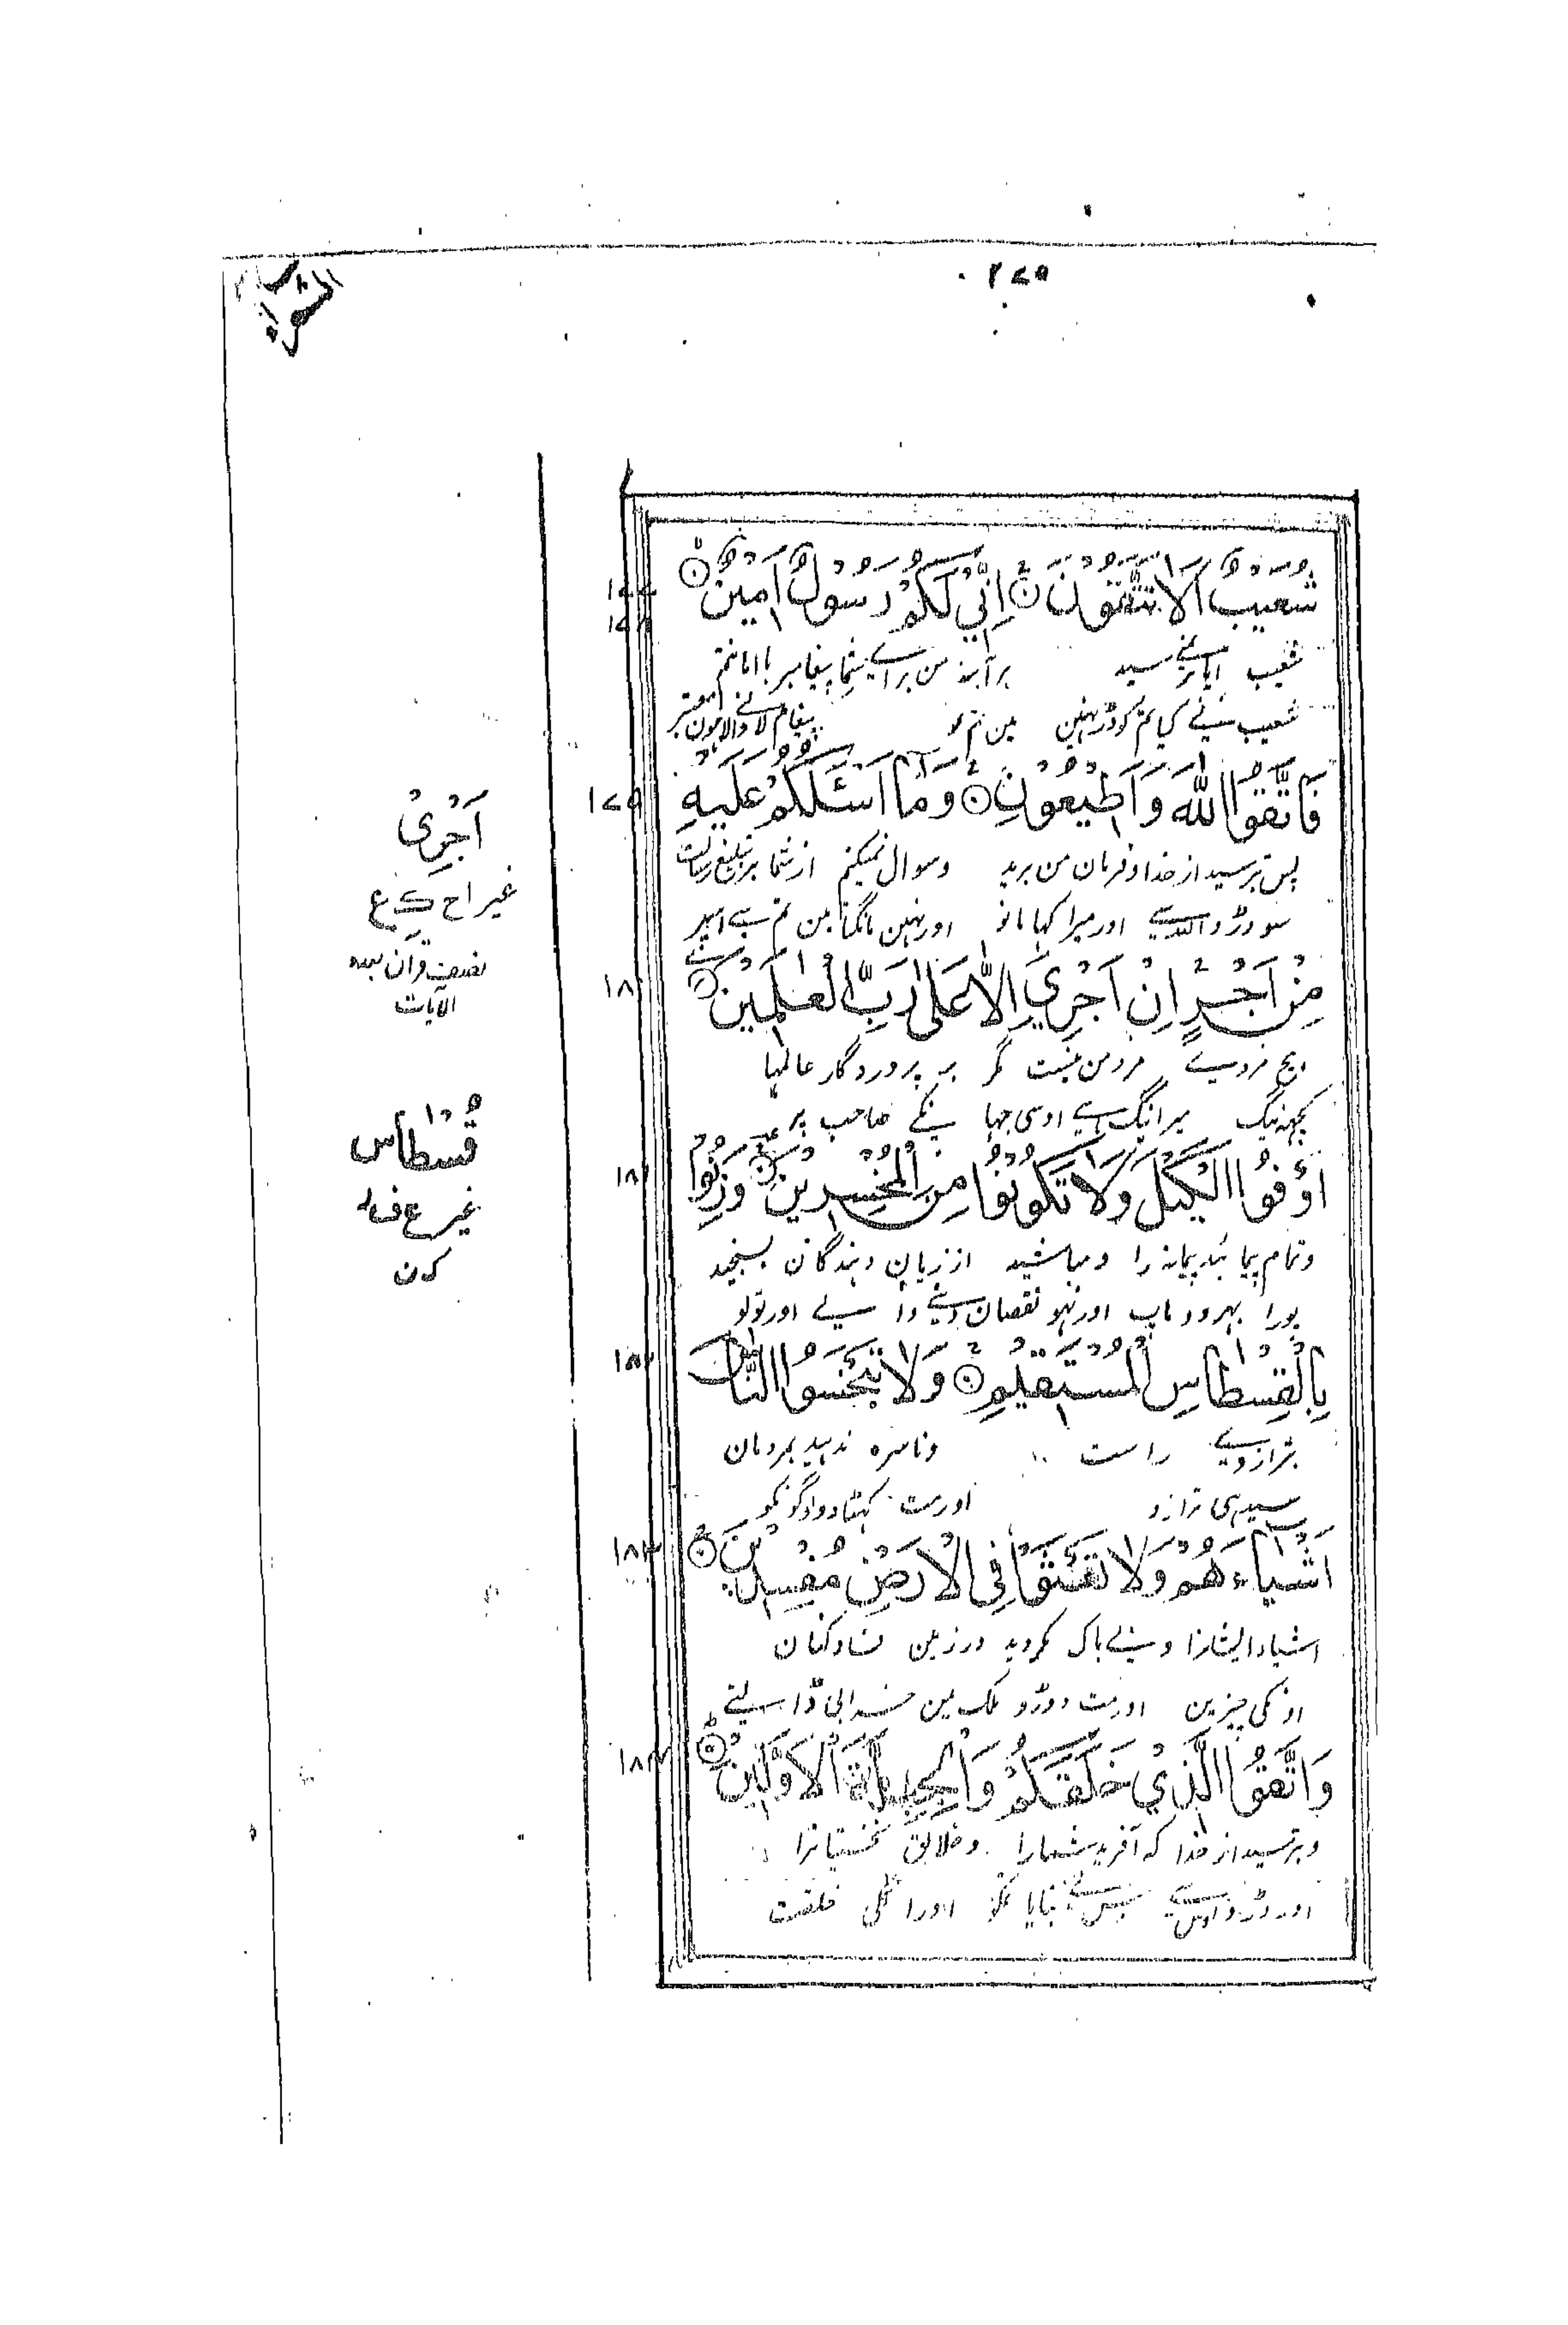 ٢٧٥
الشعراء
شُعَيْبٌ اَلَا تَتَّقُوْنَ اِنِّيْ لَكُمْ رَسُوْلٌ اَمِيْنٌ
١٧٧
١٧٨
شعیب آیا نمی ترسید برآینه من برای شما پیغامبر با امانتم
شعیب نے کیا تم کو ڈر نہین مین تم کو پیغام لانے والا ہون معتبر
فَاتَّقُوا اللّٰهَ وَاَطِيْعُوْنِ وَمَا اَسْـَٔلُكُمْ عَلَيْهِ
١٧٩
پس بترسید از خدا و فرمان من برید و سوال نمیکنم از شما بر تبلیغ رسالت
سو ڈرو اللہ سے اور میرا کہا مانو اور نہین مانگتا مین تم سے اسپر
مِنْ اَجْرٍ اِنْ اَجْرِيَ اِلَّا عَلٰى رَبِّ الْعٰلَمِيْنَ
١٨٠
ہیچ مزدے مزد من نیست مگر بر پروردگار عالمہا
کچہہ نیگ میرا نیگ ہے اوسی جہا نکے صاحب پر
اَوْفُوا الْكَيْلَ وَلَا تَكُوْنُوْا مِنَ الْمُخْسِرِيْنَ وَزِنُوْا
١٨١
و تمام پیمائید پیمانہ را و مباشید از زیان دہندگان بسنجید
پورا بہر دو ماپ اور نہو نقصان دینے وا لے اور تولو
بِالْقِسْطَاسِ الْمُسْتَقِيْمِ وَلَا تَبْخَسُوا النَّاسَ
١٨٢
بترازوے راست و ناسره ندہید بمردمان
سیدہی ترازو اور مت گہٹا دو لوگونکو
اَشْيَاءَهُمْ وَلَا تَعْثَوْا فِي الْاَرْضِ مُفْسِدِيْنَ
١٨٣
اشیاء ایشانرا و بے باک مگردید در زمین فساد کنان
اونکی چیزین اور مت دوڑو ملک مین خرابی ڈا لتے
وَاتَّقُوا الَّذِيْ خَلَقَكُمْ وَالْجِبِلَّةَ الْاَوَّلِيْنَ
١٨٤
و بترسید از خدا کہ آفرید شمارا و خلایق نخستیانرا
اور ڈرو اوس سے جس نے بنایا تمکو اور اگلی خلقت
اَجْرِیْ
غیر اح ک ع
نصف قرآن
الآیات
قُسْطَاس
غیر ع ف